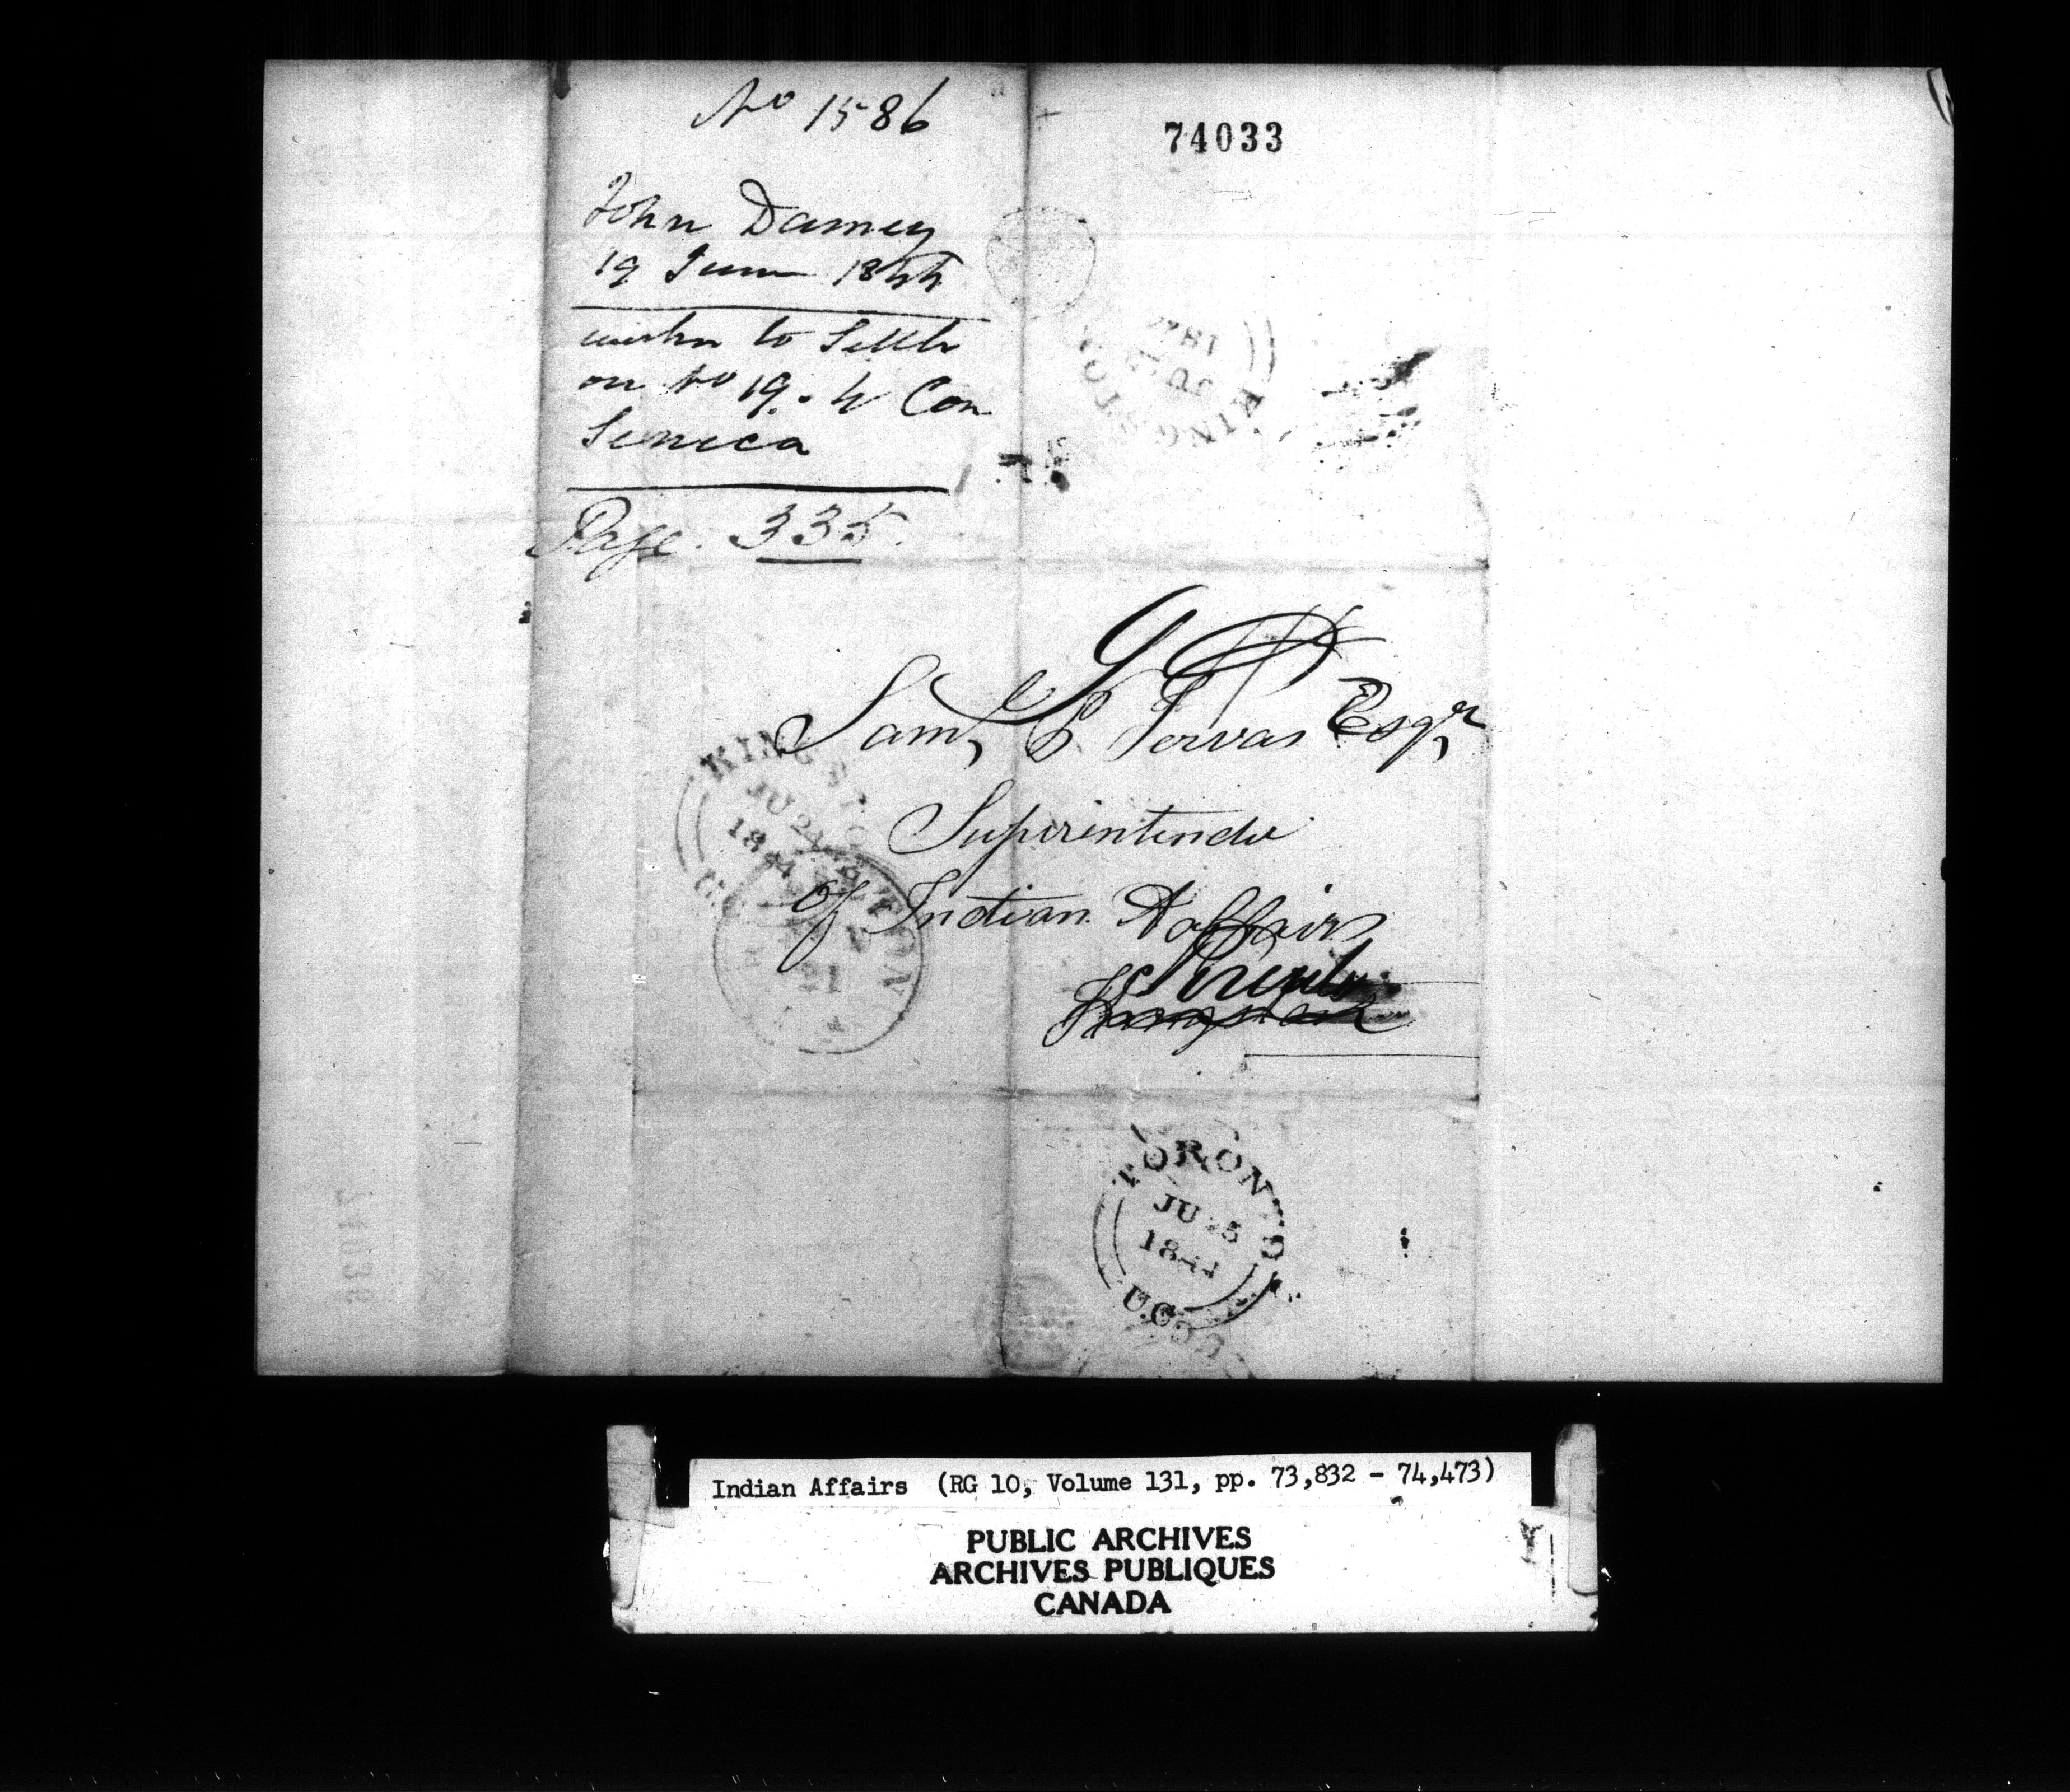 No 1586
74033
John Damey
19 June 1844
wishes to Settle
on No 19. 4 Con
Seneca
Page. 335.
KINGSTON
JU
184
Saml P Jervas Esqr
Superintender
of Indian Aaffairs
Toronto
Kingston
KINGSTON
JU 24
1844
21
TORONTO
JU 25
1844
U.C.
Indian Affairs (RG 10, Volume 131, pp. 73,832 - 74,473)
PUBLIC ARCHIVES
ARCHIVES PUBLIQUES
CANADA